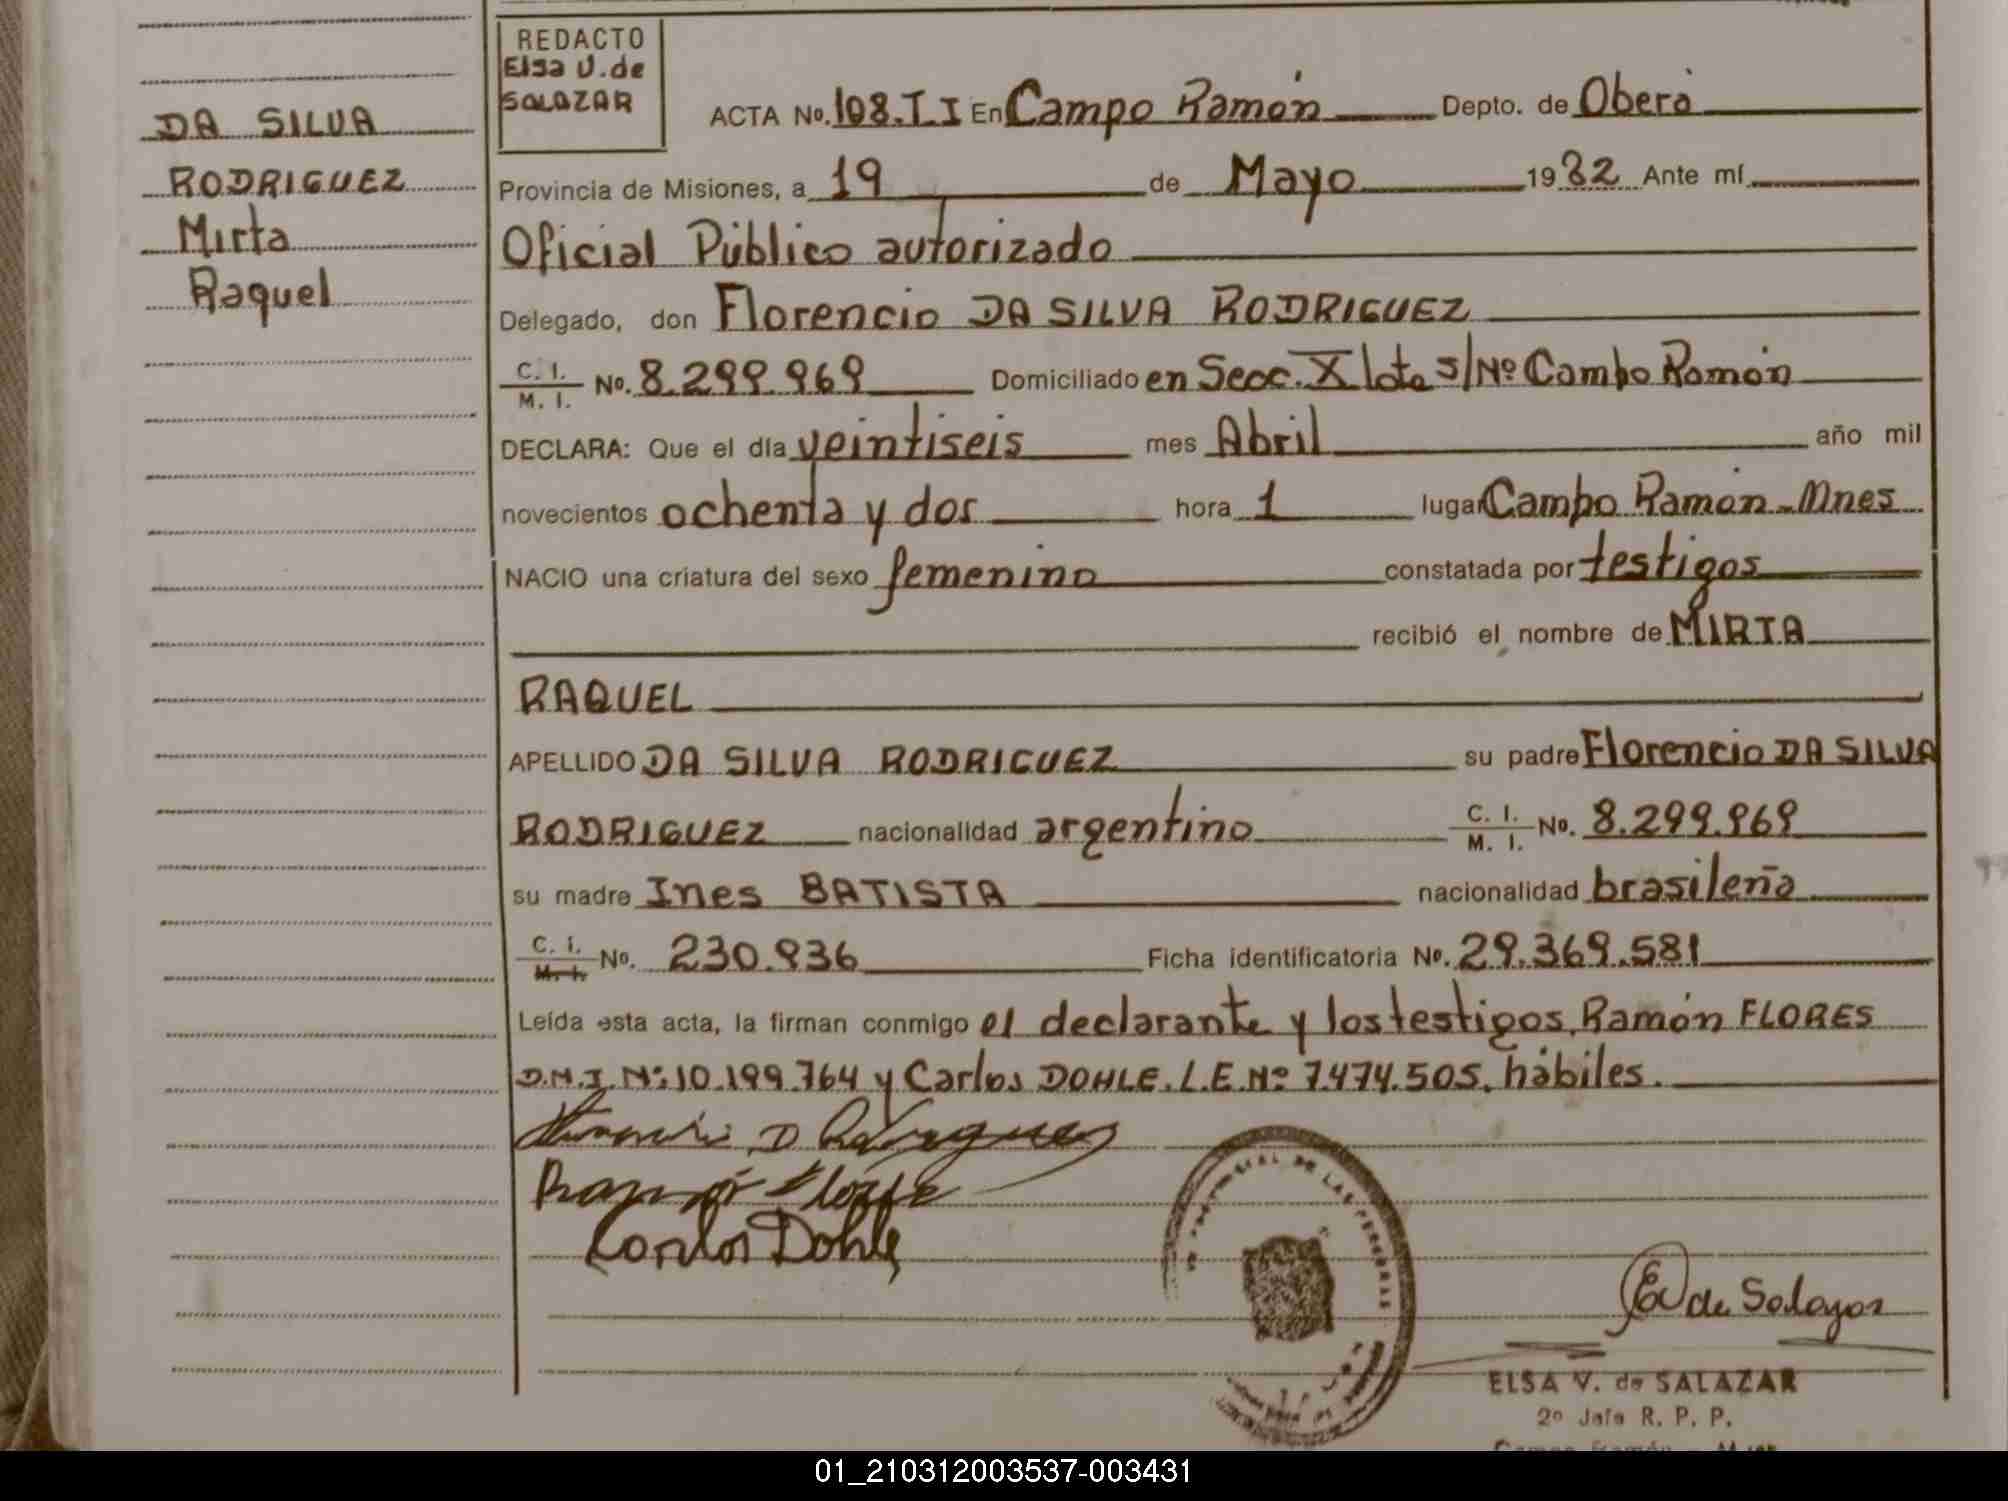 DA SILVA
RODRIGUEZ
Mirta
Raquel
REDACTO
Elsa V. de
SALAZAR
ACTA No. 108.T.I En Campo Ramón Depto. de Oberá
Provincia de Misiones, a 19 de Mayo 1982 Ante mí
Oficial Público autorizado
Delegado, don Florencio DA SILVA RODRIGUEZ
C. I.
M. I. No. 8.299.969 Domiciliado en Secc. X lote s/Nº Campo Ramón
DECLARA: Que el día veintiseis mes Abril año mil
novecientos ochenta y dos hora 1 lugar Campo Ramón - Mnes
NACIO una criatura del sexo femenino constatada por testigos
recibió el nombre de MIRTA
RAQUEL
APELLIDO DA SILVA RODRIGUEZ su padre Florencio DA SILVA
RODRIGUEZ nacionalidad argentino C. I. M. I. No. 8.299.969
su madre Ines BATISTA nacionalidad brasileña
C. I. M. I. No. 230.936 Ficha identificatoria No. 29.369.581
Leída esta acta, la firman conmigo el declarante y los testigos, Ramón FLORES
D.N.I. Nº: 10.199.764 y Carlos DOHLE. L.E. Nº 7.474.505. hábiles.
Ramón Flores
Carlos Dohle
DE LAS PERSONAS
EV de Salazar
ELSA V. de SALAZAR
2º Jefe R. P. P.
Campo Ramón - Mnes
01_210312003537-003431